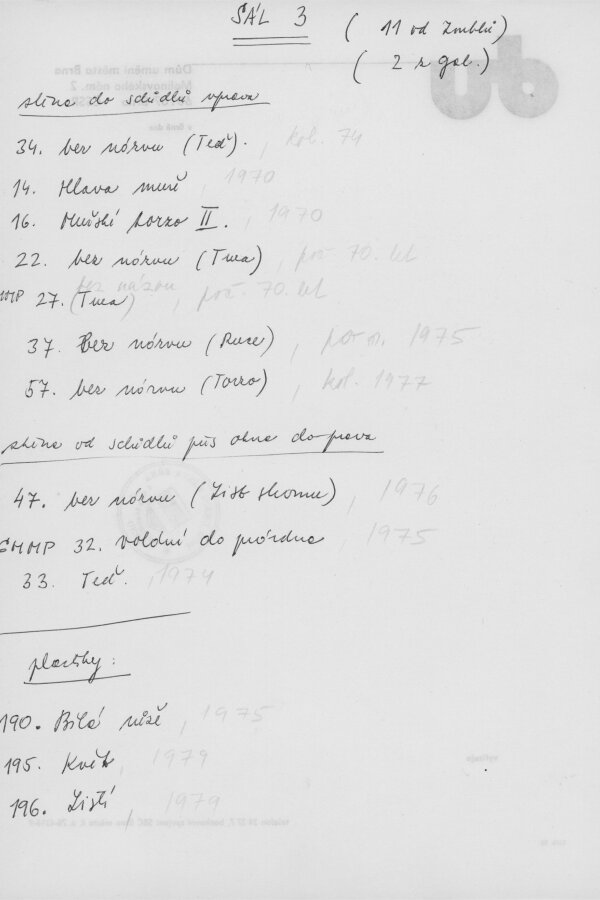 SÁL 3 ( 11 od Zoubků)
( 2 z gal.)
stěna do schůdků vpravo
34. bez názvu (Teď). , kol. 74
14. Hlava muže , 1970
16. Mužské torzo II. , 1970
22. bez názvu (Tma) , poč 70. let
bez názvu
27. (Tma) , poč. 70. let
37. Bez názvu (Ruce) , 1975
57. bez názvu (Torzo) , kol. 1977
stěna od schůdků přes okna doprava
47. bez názvu (List stromu) , 1976
GHMP 32. Volání do prázdna , 1975
33. Teď. , 1974
plastiky:
190. Bílá růže , 1975
195. Květ , 1979
196. Listí , 1979